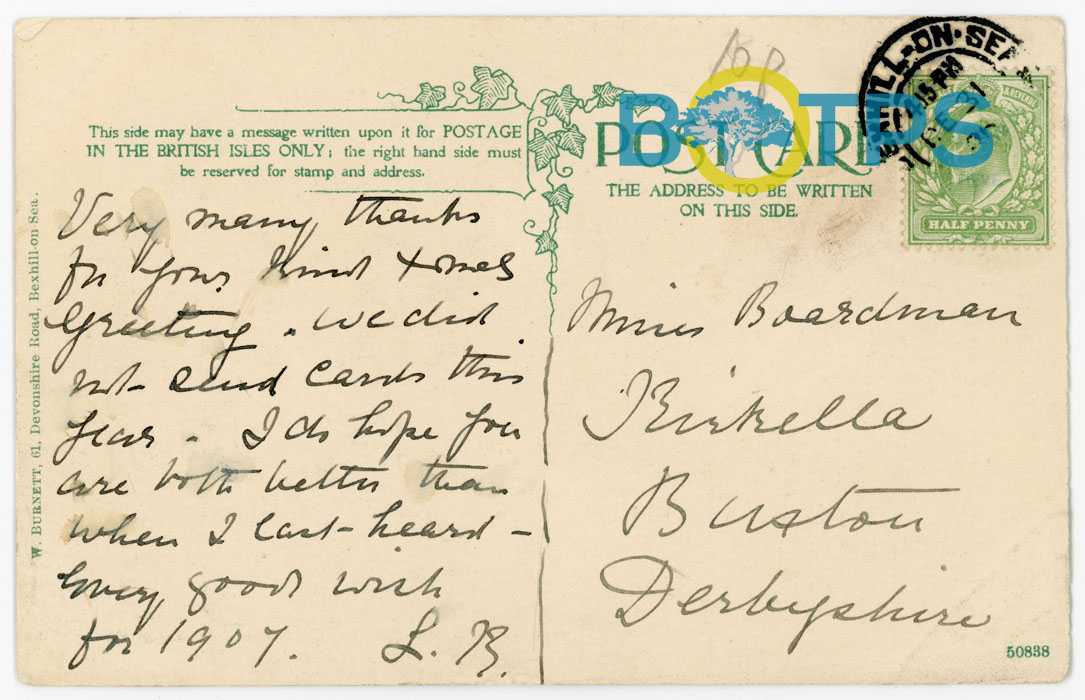 10p
BEXHILL-ON-SEA
15 PM
BOTPS
POST CARD
THE ADDRESS TO BE WRITTEN
ON THIS SIDE.
HALF PENNY
This side may have a message written upon it for POSTAGE
IN THE BRITISH ISLES ONLY; the right hand side must
be reserved for stamp and address.
W. BURNETT, 61, Devonshire Road, Bexhill-on-Sea.
Very many thanks
for your kind Xmas
Greeting. We did
not send cards this
year - I do hope you
are both better than
when I last heard -
Every good wish
for 1907. L. B.
Boardman
Kirkella
Buxton
Derbyshire
50838